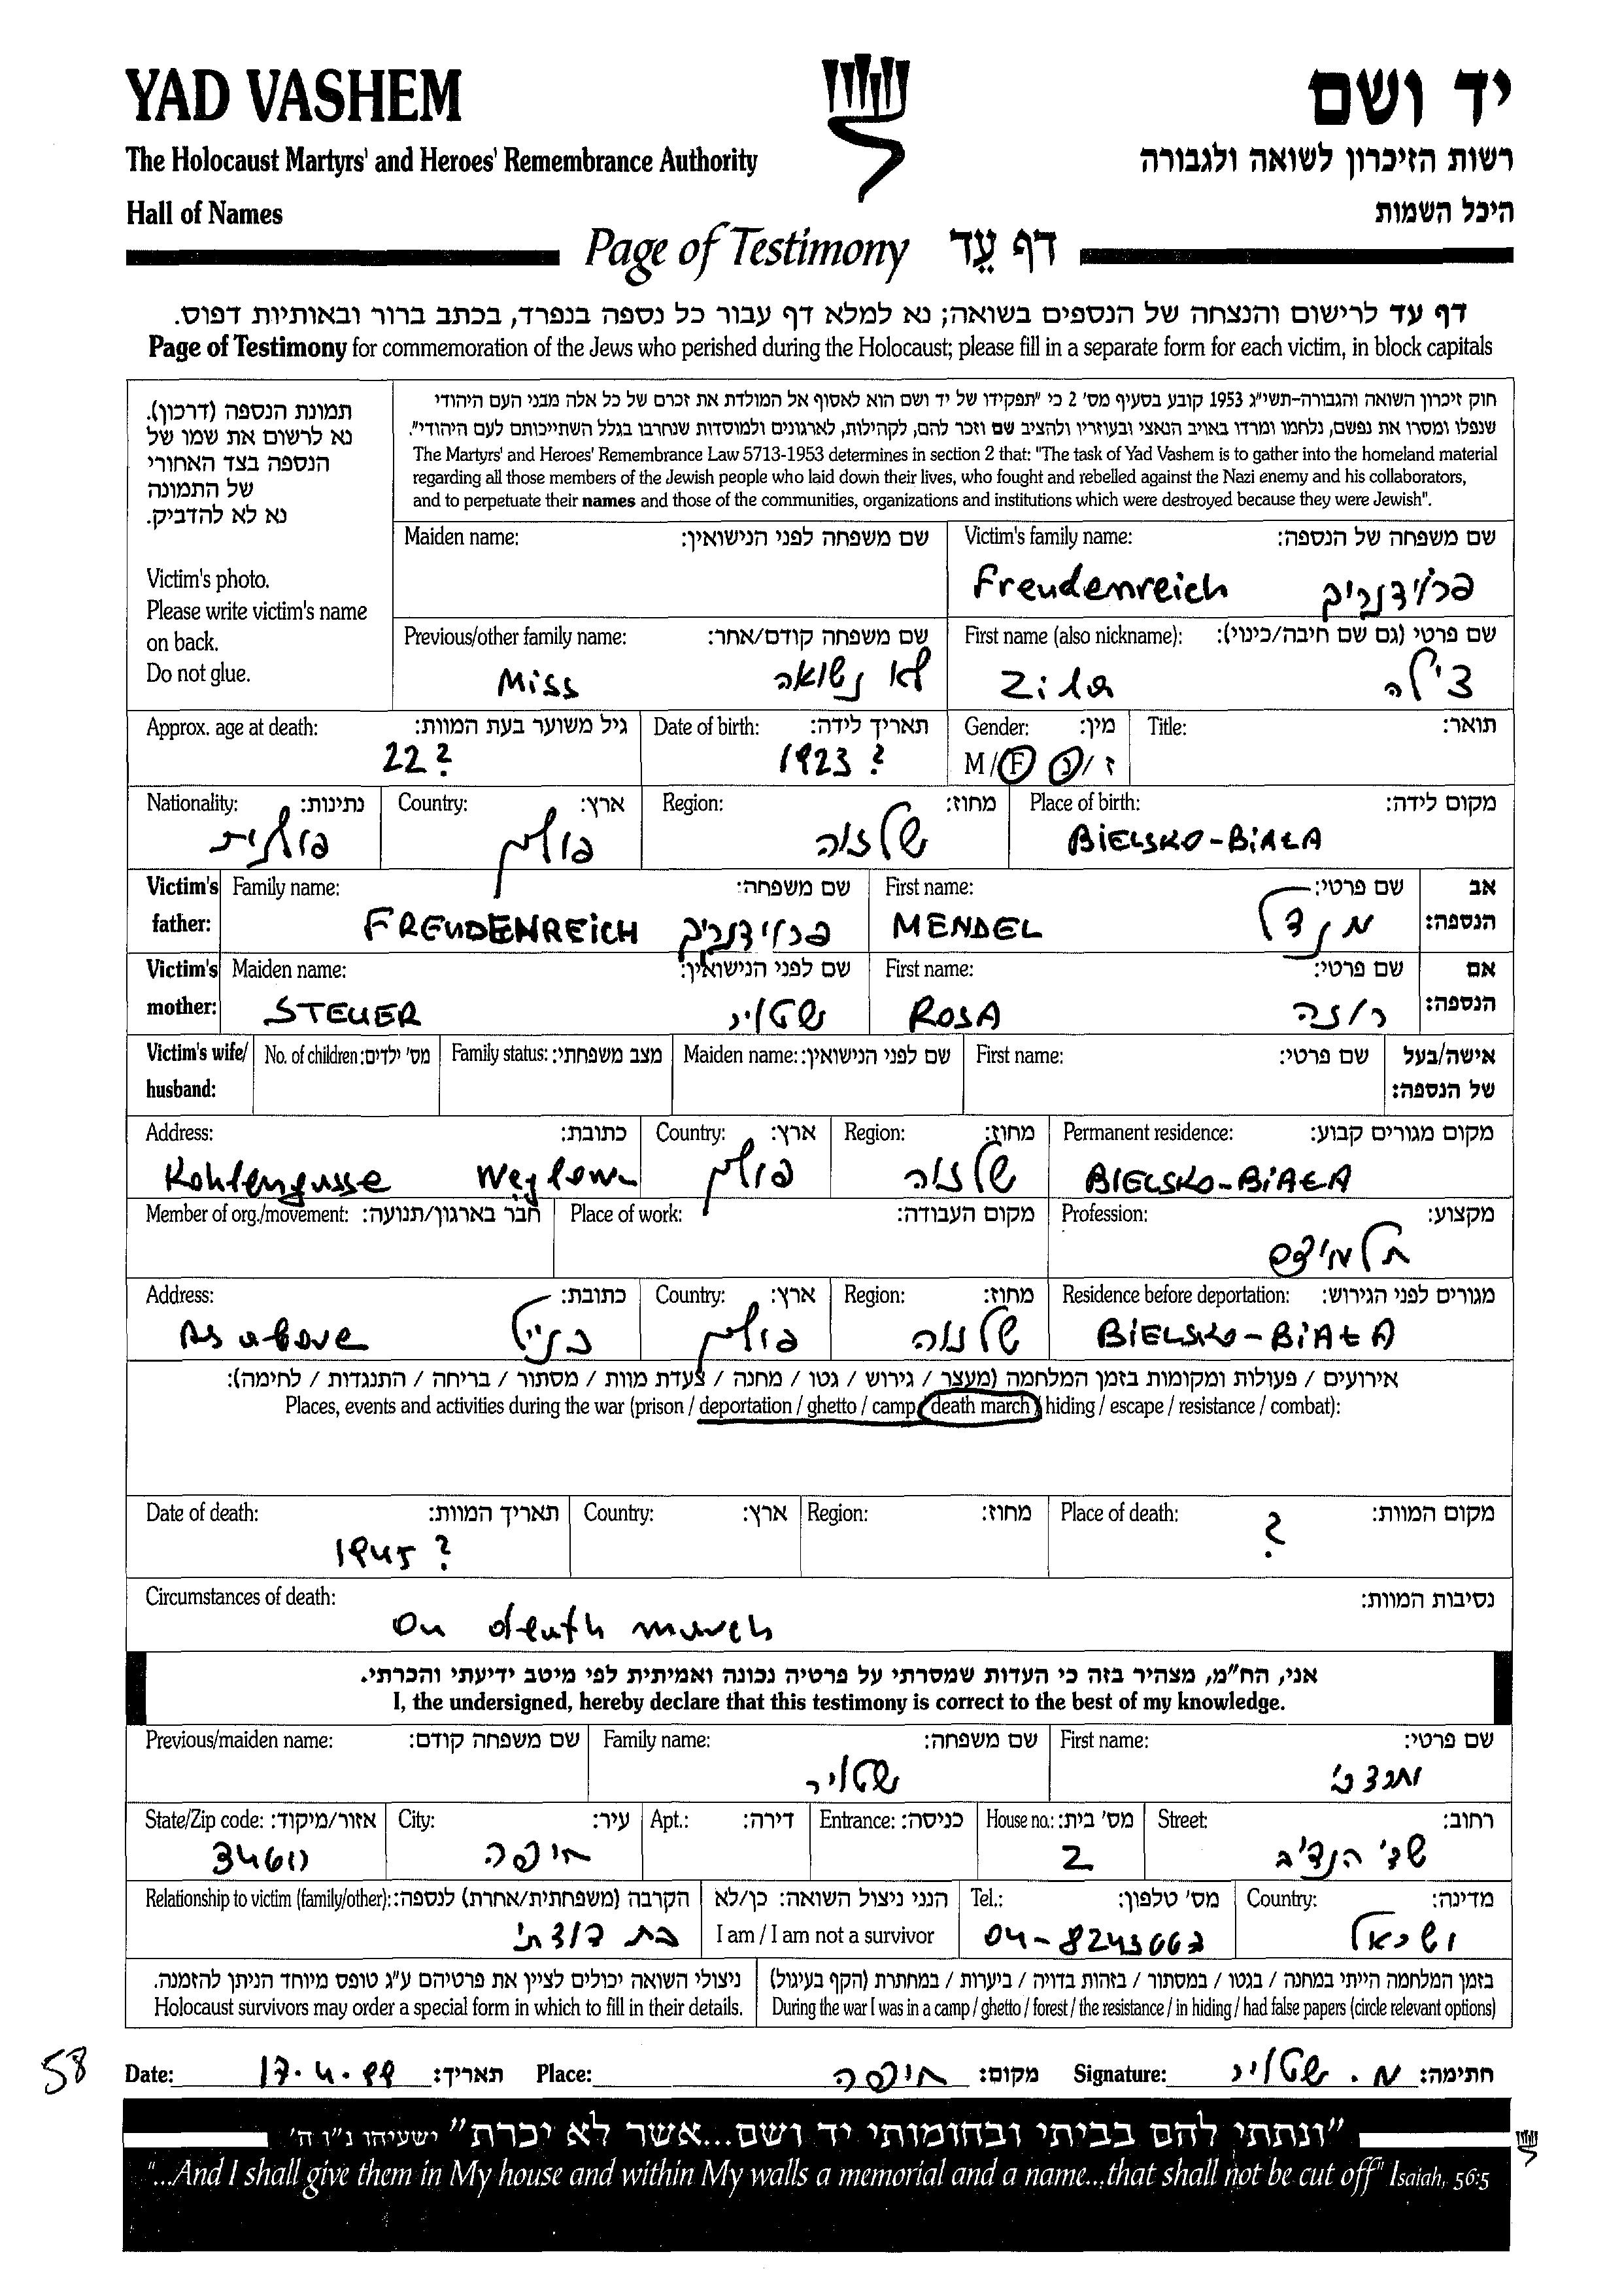 YAD VASHEM
יד ושם
The Holocaust Martyrs' and Heroes' Remembrance Authority
רשות הזיכרון לשואה ולגבורה
Hall of Names
היכל השמות
Page of Testimony דף עֵד
דף עד לרישום והנצחה של הנספים בשואה; נא למלא דף עבור כל נספה בנפרד, בכתב ברור ובאותיות דפוס.
Page of Testimony for commemoration of the Jews who perished during the Holocaust; please fill in a separate form for each victim, in block capitals
תמונת הנספה (דרכון).
נא לרשום את שמו של
הנספה בצד האחורי
של התמונה
נא לא להדביק.
Victim's photo.
Please write victim's name
on back.
Do not glue.
חוק זיכרון השואה והגבורה-תשי"ג 1953 קובע בסעיף מס' 2 כי "תפקידו של יד ושם הוא לאסוף אל המולדת את זכרם של כל אלה מבני העם היהודי
שנפלו ומסרו את נפשם, נלחמו ומרדו באויב הנאצי ובעוזריו ולהציב שם וזכר להם, לקהילות, לארגונים ולמוסדות שנחרבו בגלל השתייכותם לעם היהודי".
The Martyrs' and Heroes' Remembrance Law 5713-1953 determines in section 2 that: "The task of Yad Vashem is to gather into the homeland material
regarding all those members of the Jewish people who laid down their lives, who fought and rebelled against the Nazi enemy and his collaborators,
and to perpetuate their names and those of the communities, organizations and institutions which were destroyed because they were Jewish".
Maiden name: שם משפחה לפני הנישואין:
Victim's family name: שם משפחה של הנספה:
Freudenreich פרוידנריך
Previous/other family name: שם משפחה קודם/אחר:
Miss לא נשואה
First name (also nickname): שם פרטי (גם שם חיבה/כינוי):
Zila צילה
Approx. age at death: גיל משוער בעת המוות:
22?
Date of birth: תאריך לידה:
1923?
Gender: מין:
M/F ז/נ
Title: תואר:
Nationality: נתינות:
פולנית
Country: ארץ:
פולין
Region: מחוז:
שלזיה
Place of birth: מקום לידה:
BIELSKO-BIAŁA
Victim's father: Family name: שם משפחה:
FREUDENREICH פרוידנריך
First name: שם פרטי:
MENDEL מנדל
אב הנספה:
Victim's mother: Maiden name: שם לפני הנישואין:
STEUER שטויר
First name: שם פרטי:
ROSA רוזה
אם הנספה:
Victim's wife/ husband: No. of children: מס' ילדים: Family status: מצב משפחתי: Maiden name: שם לפני הנישואין: First name: שם פרטי: אישה/בעל של הנספה:
Address: כתובת:
Kohlengasse
Country: ארץ:
פולין
Region: מחוז:
שלזיה
Permanent residence: מקום מגורים קבוע:
BIELSKO-BIAŁA
Member of org./movement: חבר בארגון/תנועה:
Place of work: מקום העבודה:
Profession: מקצוע:
Address: כתובת:
As above כנ"ל
Country: ארץ:
פולין
Region: מחוז:
שלזיה
Residence before deportation: מגורים לפני הגירוש:
BIELSKO-BIAŁA
אירועים / פעולות ומקומות בזמן המלחמה (מעצר / גירוש / גטו / מחנה / צעדת מוות / מסתור / בריחה / התנגדות / לחימה):
Places, events and activities during the war (prison / deportation / ghetto / camp / death march / hiding / escape / resistance / combat):
Date of death: תאריך המוות:
1945?
Country: ארץ:
Region: מחוז:
Place of death: מקום המוות:
?
Circumstances of death: נסיבות המוות:
On death march
אני, הח"מ, מצהיר בזה כי העדות שמסרתי על פרטיה נכונה ואמיתית לפי מיטב ידיעתי והכרתי.
I, the undersigned, hereby declare that this testimony is correct to the best of my knowledge.
Previous/maiden name: שם משפחה קודם:
Family name: שם משפחה:
שטויר
First name: שם פרטי:
State/Zip code: אזור/מיקוד:
City: עיר:
חיפה
Apt.: דירה:
Entrance: כניסה:
House no.: מס' בית:
2
Street: רחוב:
שד' הנדיב
Relationship to victim (family/other): הקרבה (משפחתית/אחרת) לנספה:
בת דודתי
הנני ניצול השואה: כן/לא
I am / I am not a survivor
Tel.: מס' טלפון:
Country: מדינה:
ישראל
ניצולי השואה יכולים לציין את פרטיהם ע"ג טופס מיוחד הניתן להזמנה.
Holocaust survivors may order a special form in which to fill in their details.
בזמן המלחמה הייתי במחנה / בגטו / במסתור / בזהות בדויה / ביערות / במחתרת (הקף בעיגול)
During the war I was in a camp / ghetto / forest / the resistance / in hiding / had false papers (circle relevant options)
58
Date: 17.4.99 תאריך: Place: חיפה מקום: Signature: מ. שטויר חתימה:
"ונתתי להם בביתי ובחומותי יד ושם...אשר לא יכרת" ישעיהו נ"ו ה'
"...And I shall give them in My house and within My walls a memorial and a name...that shall not be cut off" Isaiah, 56:5